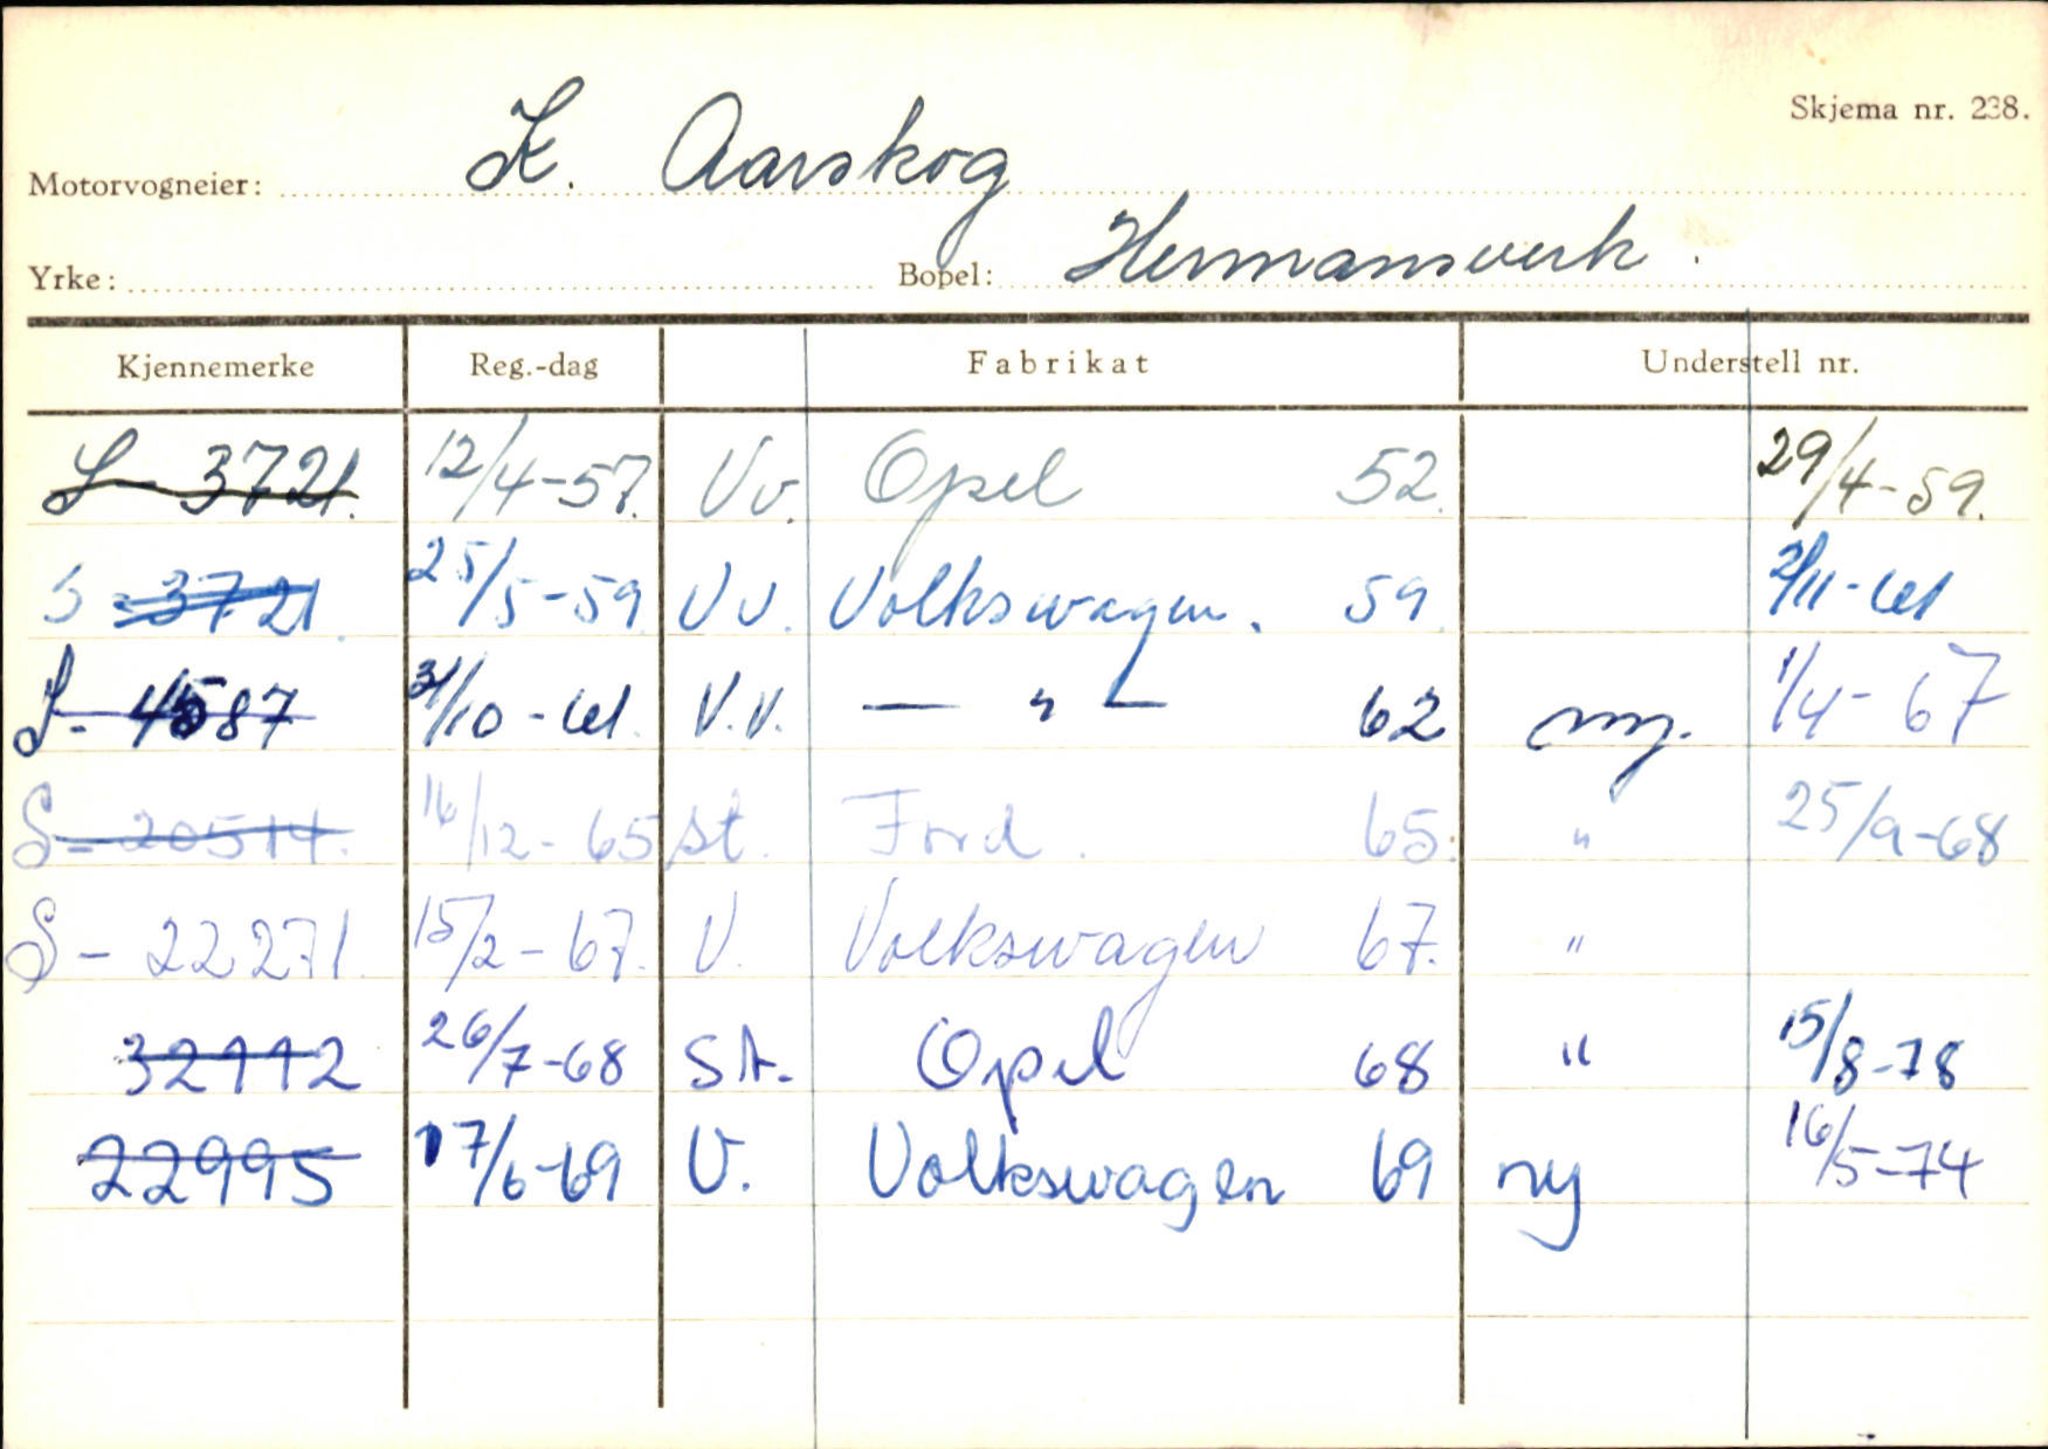 Skjema nr. 238.
Motorvogneier: K. Aarskog
Yrke: Bopel: Hermansverk.
Kjennemerke Reg.-dag Fabrikat Understell nr.
S - 3721. 12/4-57. Vv. Opel 52. 29/4-59.
S - 3721. 25/5-59. Vv. Volkswagen. 59. 2/11-61
S - 4587 31/10-61. V.V. — " — 62 ny. 1/4-67
S - 20514. 16/12-65 St. Ford. 65. " 25/9-68
S - 22271. 15/2-67. V. Volkswagen 67. "
32112 26/7-68 St. Opel 68 " 15/8-78
22995 17/6-69 V. Volkswagen 69 ny 16/5-74